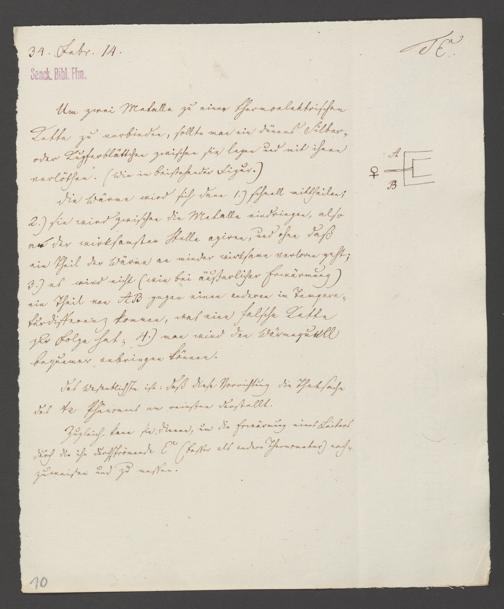 34. Febr. 14.
TE.
Senck. Bibl. Ffm.
Um zwei Metalle zu einer thermoelektrischen
Kette zu verbinden, sollte man ein dünnes Silber-
oder Kupferblättchen zwischen sie legen und mit ihnen
verlöthen. (wie in beistehender Figur.)
A
♀
B
Die Wärme wird sich dann 1.) schnell mittheilen;
2.) sie wird zwischen die Metalle eindringen, also
an der wirksamsten Stelle agiren, und ohne daß
ein Theil der Wärme an minder wirksame verloren geht;
3.) es wird nicht (wie bei äußerlicher Erwärmung)
ein Theil von AB gegen einen anderen in Tempera-
turdifferenz kommen, was eine falsche Kette
zur Folge hat; 4.) man wird den Wärmequell
bequemer anbringen können.
Das Wesentlichste ist: daß diese Vorrichtung die Thatsache
des am reinsten darstellt.
Zugleich kann sie dienen, um die Erwärmung eines Leiters
durch die ihn durchströmende E (besser als andere Thermometer) nach-
zuweisen und zu messen.
10